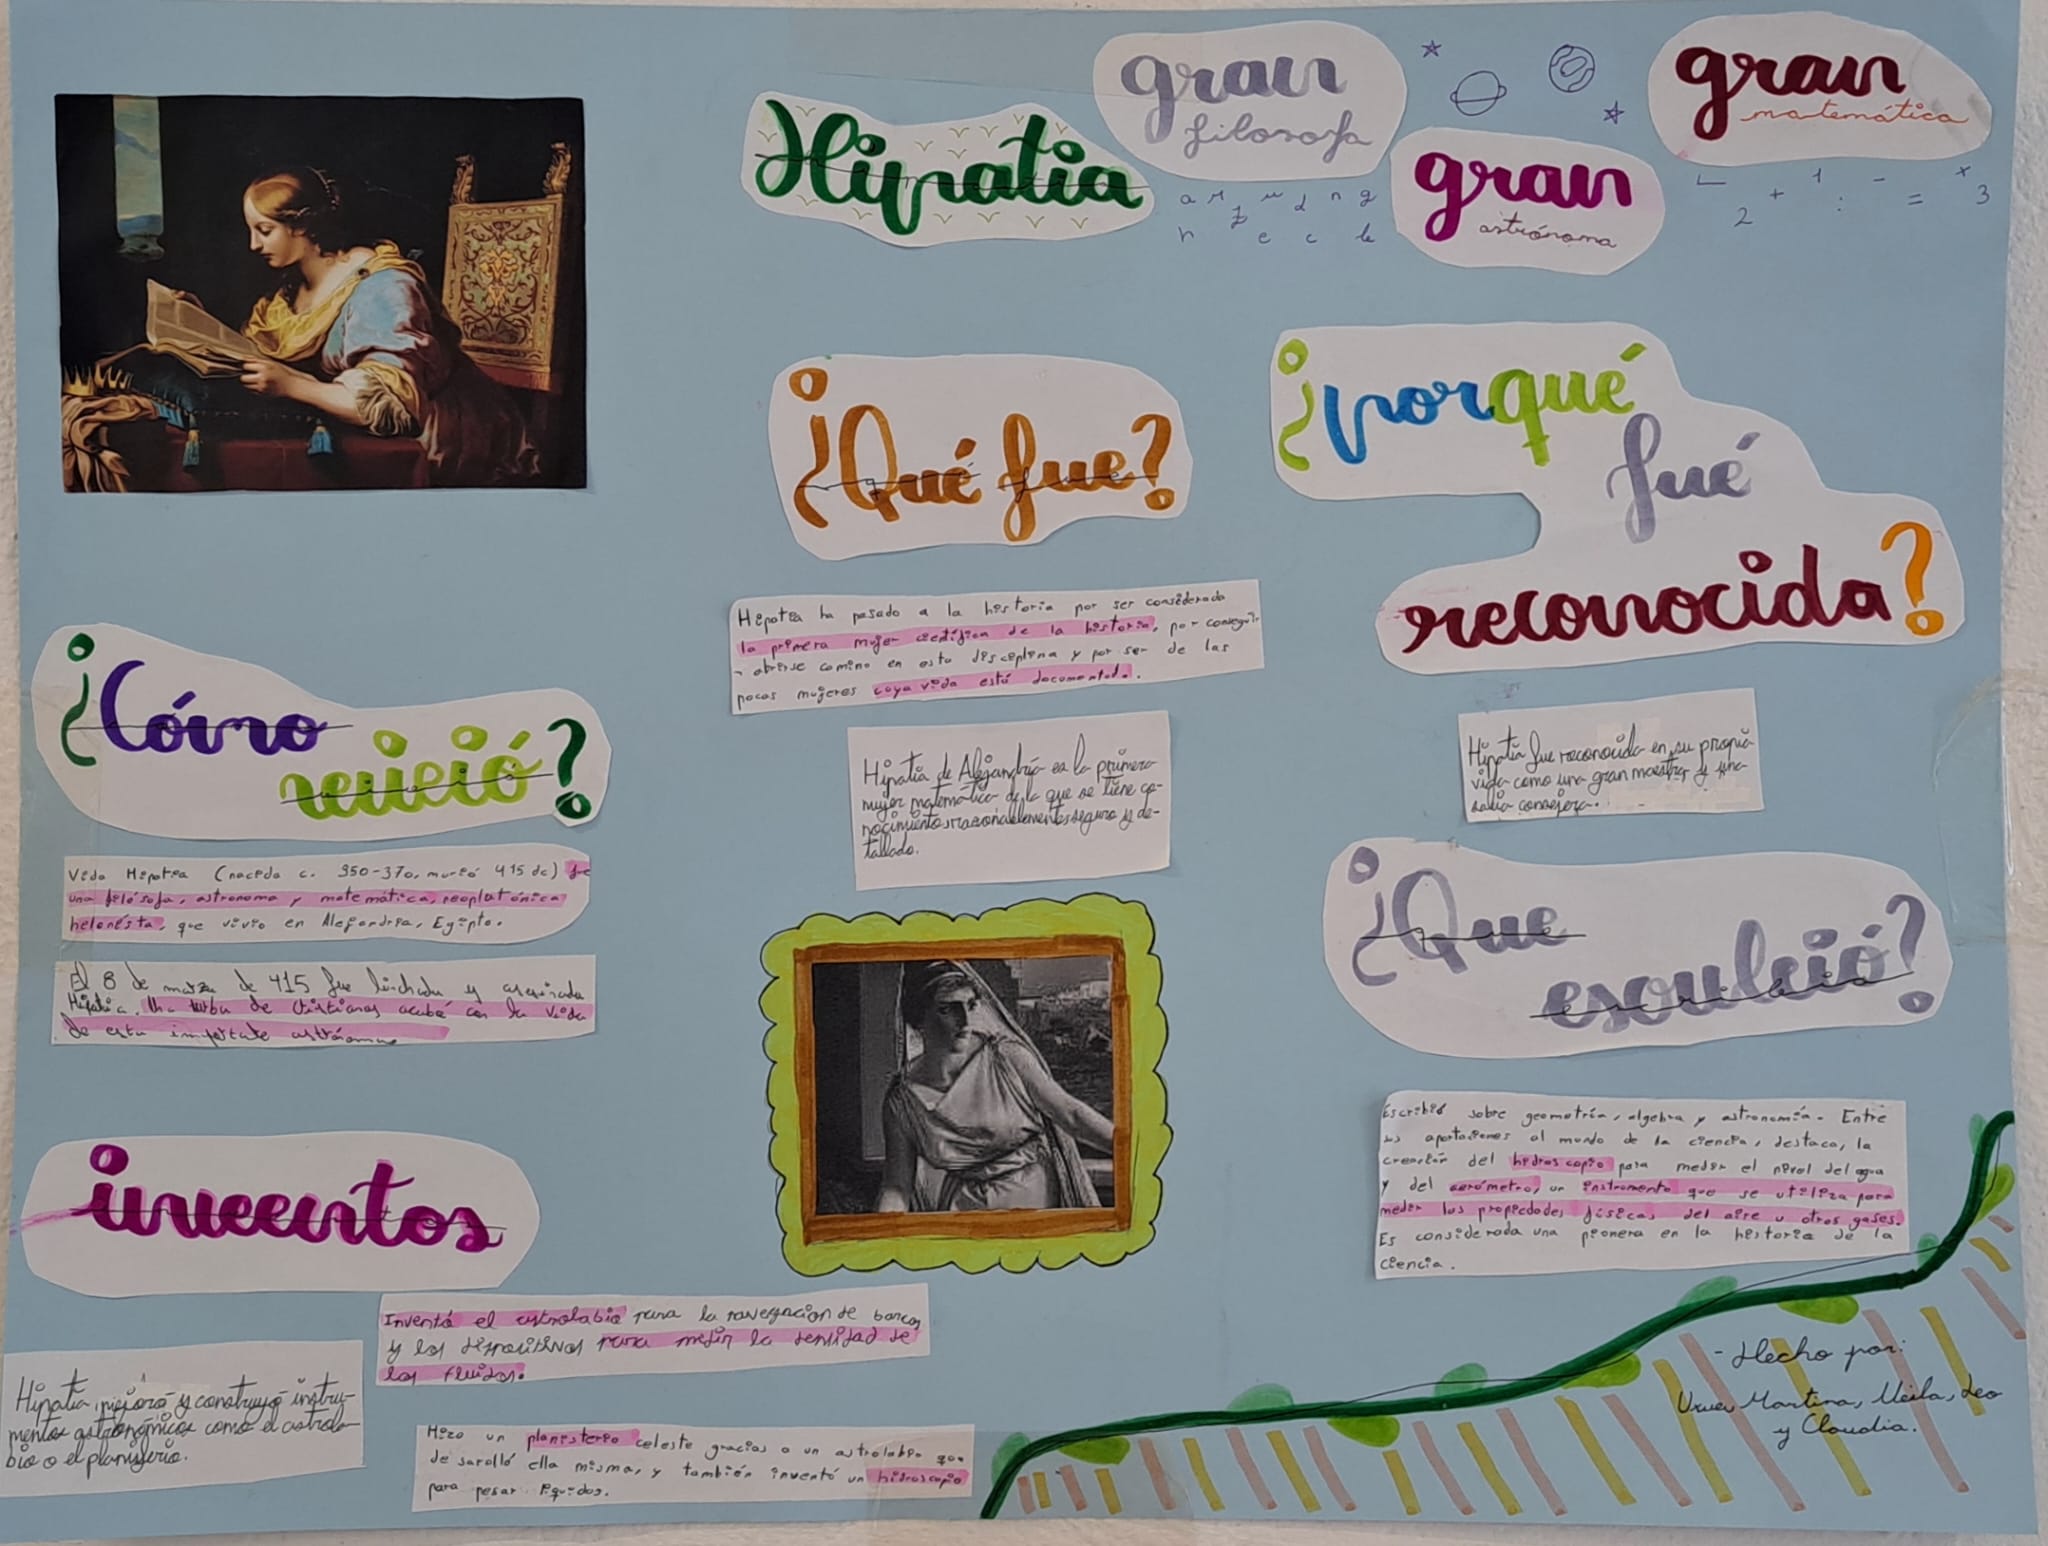 Hipatia
gran
filosofa
gran
astrónoma
gran
matemática
¿Qué fue?
Hipatia ha pasado a la historia por ser considerada
la primera mujer científica de la historia, por consegui-
r abrirse camino en esta disciplina y por ser de las
pocas mujeres coya vida está documentada.
Hipatia de Alejandría es la primera
mujer matemática de la que se tiene co-
nocimiento razonablemente seguro y de-
tallado.
¿porqué
fué
reconocida?
Hipatia fue reconocida en su propia
vida como una gran maestra y una
sabia consejera.
¿Que
escribió?
Escribió sobre geometría, algebra y astronomía. Entre
sus aportaciones al mundo de la ciencia, destaca, la
creación del hidroscopio para medir el nivel del agua
y del aerómetro, un instrumento que se utiliza para
medir las propiedades físicas del aire u otros gases.
Es considerada una pionera en la historia de la
ciencia.
¿Cómo
vivió?
Vida Hipatia (nacida c. 350-370, murió 415 dc) fue
una filósofa, astronoma y matemática, neoplatónica
helenista, que vivio en Alejandria, Egipto.
El 8 de marzo de 415 fue linchada y asesinada
Hipatia. Una turba de Cristianos acabó con la vida
de esta importate astrónoma
inventos
Inventó el astrolabio para la navegacion de barcos
y los dispositivos para medir la densidad de
los fluidos.
Hipatia mejoró y construyó instru-
mentos astronómicos como el astrola-
bio o el planisferio.
Hizo un planisferio celeste gracias a un astrolabio que
desarolló ella misma, y también inventó un hidroscopio
para pesar liquidos.
- Hecho por:
Martina, Leo
y Claudia.